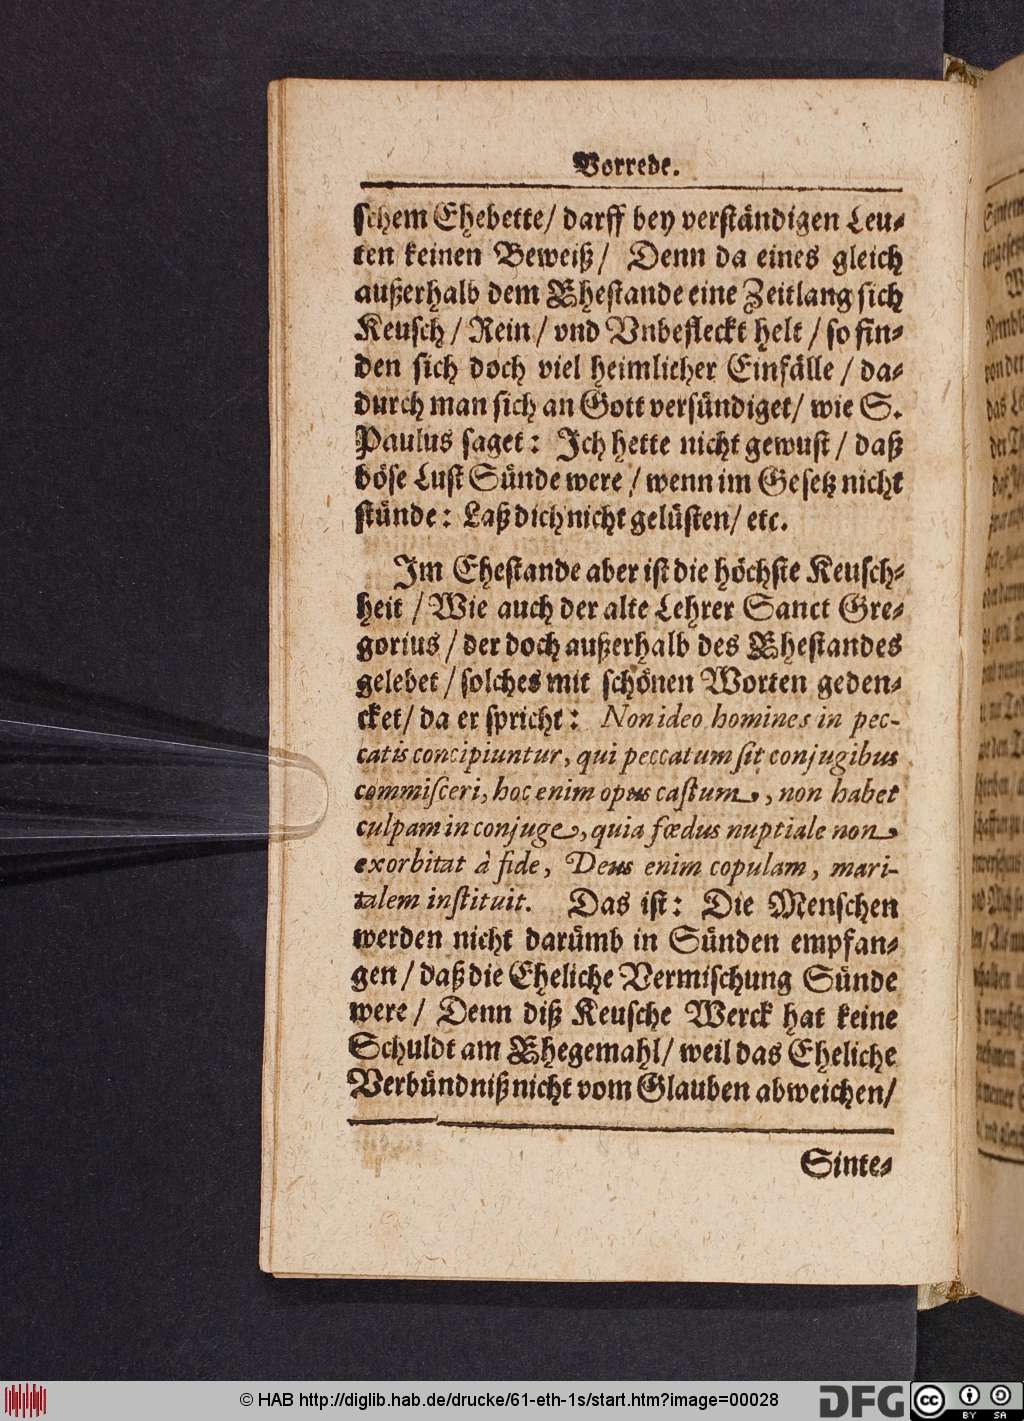 Vorrede.
schem Ehebette/ darff bey verständigen Leu⸗
ten keinen Beweiß/ Denn da eines gleich
außerhalb dem Ehestande eine Zeitlang sich
Keusch / Rein / vnd Vnbefleckt helt / so fin⸗
den sich doch viel heimlicher Einfälle / da⸗
durch man sich an Gott versündiget/ wie S.
Paulus saget: Ich hette nicht gewust / daß
böse Lust Sünde were / wenn im Gesetz nicht
stünde: Laß dich nicht gelüsten/ etc.
Im Ehestande aber ist die höchste Keusch⸗
heit / Wie auch der alte Lehrer Sanct Gre⸗
gorius / der doch außerhalb des Ehestandes
gelebet / solches mit schönen Worten geden⸗
cket/ da er spricht: Non ideo homines in pec-
catis concipiuntur, qui peccatum sit conjugibus
commisceri, hoc enim opus castum, non habet
culpam in conjuge, quia fœdus nuptiale non
exorbitat à fide, Deus enim copulam, mari-
talem instituit. Das ist: Die Menschen
werden nicht darümb in Sünden empfan⸗
gen / daß die Eheliche Vermischung Sünde
were / Denn diß Keusche Werck hat keine
Schuldt am Ehegemahl/ weil das Eheliche
Verbündniß nicht vom Glauben abweichen/
Sinte⸗
© HAB http://diglib.hab.de/drucke/61-eth-1s/start.htm?image=00028
DFG
cc BY SA